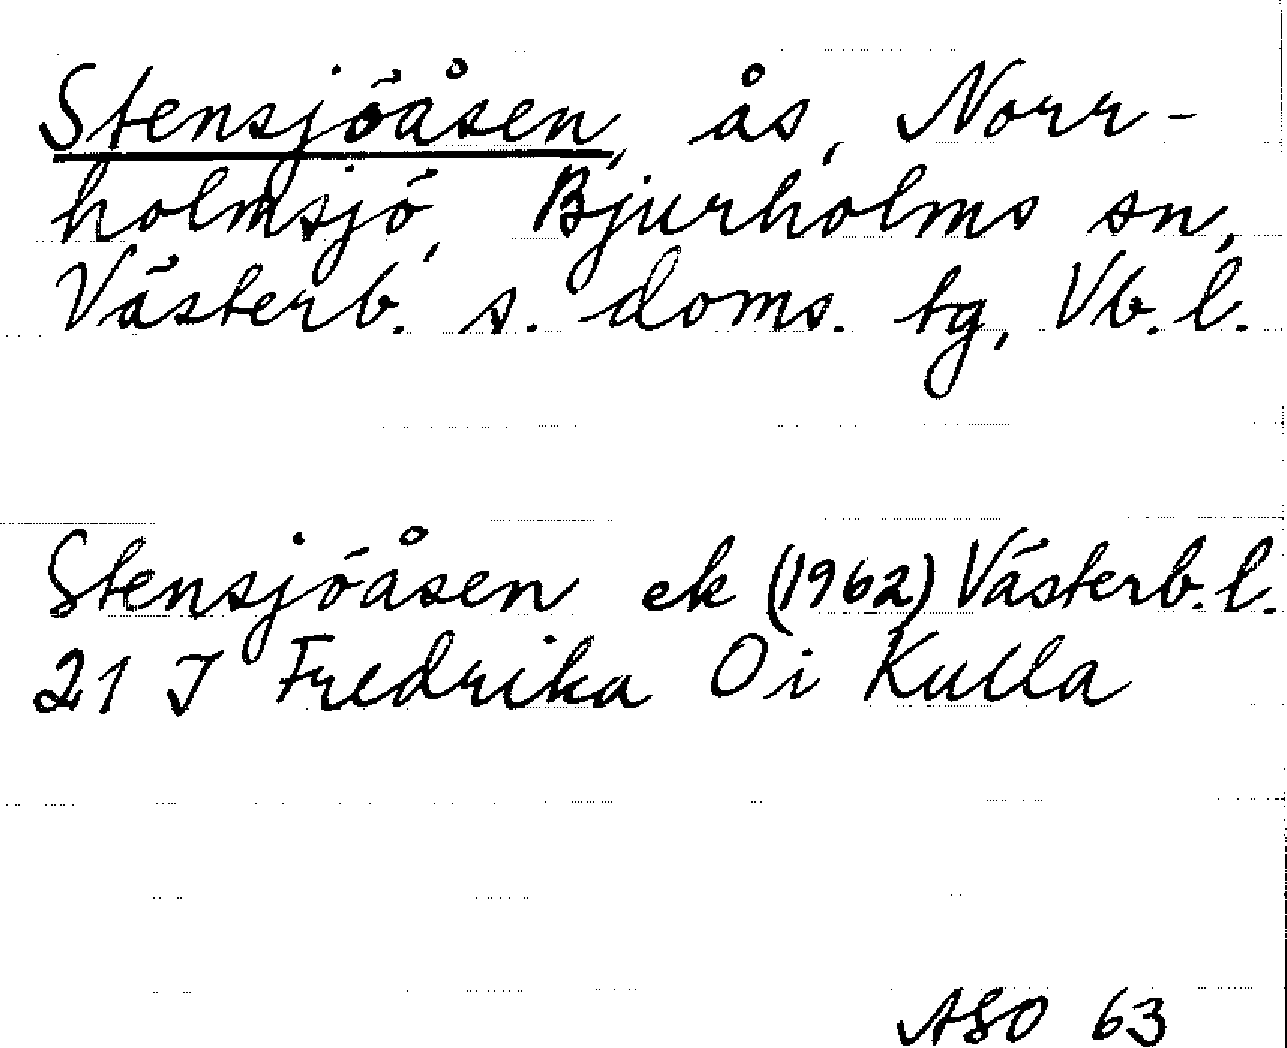 Stensjöåsen, ås, Norr-
holmsjö, Bjurholms sn,
Västerb. s. doms. tg, Vb. l.
Stensjöåsen ek (1962) Västerb. l.
21 J Fredrika Oi Kulla
ASO 63